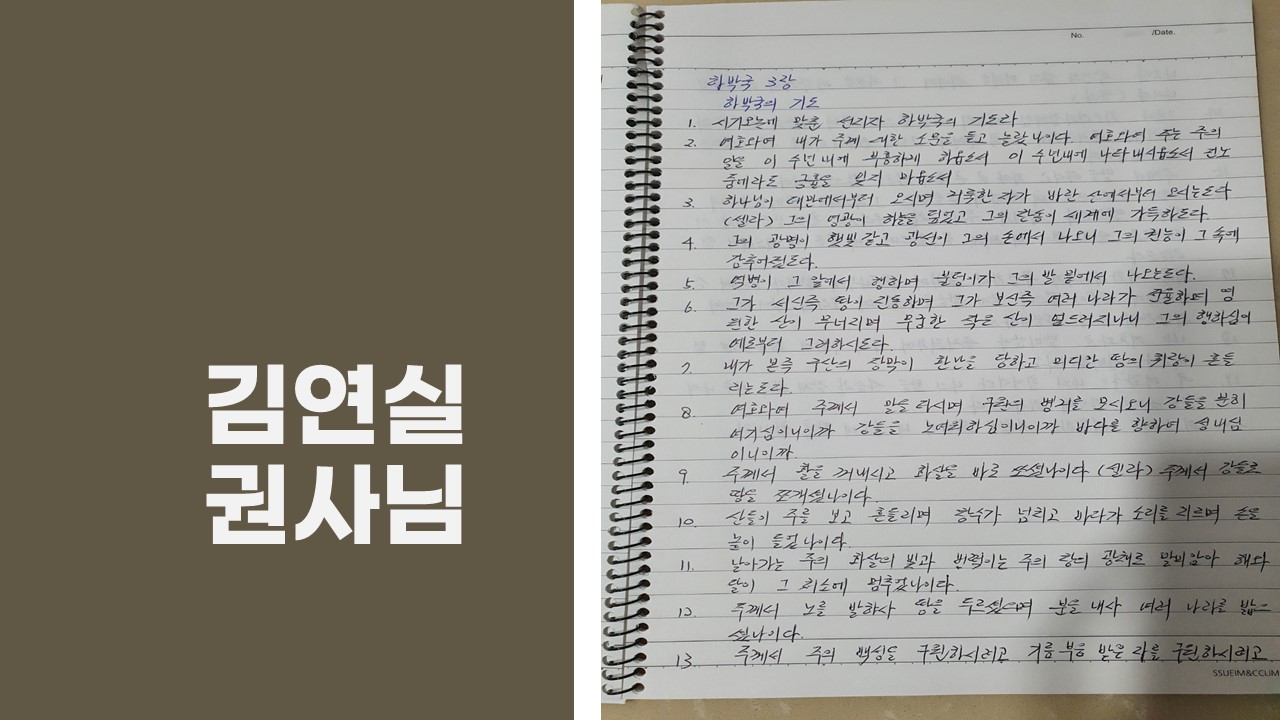 김연실
권사님
No. /Date.
하박국 3장
하박국의 기도
1. 시기오놋에 맞춘 선지자 하박국의 기도라
2. 여호와여 내가 주께 대한 소문을 듣고 놀랐나이다. 여호와여 주는 주의
일을 이 수년 내에 부흥하게 하옵소서 이 수년내에 나타내시옵소서 진노
중에라도 긍휼을 잊지 마옵소서
3. 하나님이 데만에서부터 오시며 거룩한 자가 바란 산에서부터 오시는도다
(셀라) 그의 영광이 하늘을 덮었고 그의 찬송이 세계에 가득하도다.
4. 그의 광명이 햇빛 같고 광선이 그의 손에서 나오니 그의 권능이 그 속에
감추어졌도다.
5. 역병이 그 앞에서 행하며 불덩이가 그의 발 밑에서 나오는도다.
6. 그가 서신즉 땅이 진동하며 그가 보신즉 여러 나라가 전율하며 영
원한 산이 무너지며 무궁한 작은 산이 엎드러지나니 그의 행하심이
예로부터 그러하시도다.
7. 내가 본즉 구산의 장막이 환난을 당하고 미디안 땅의 휘장이 흔들
리는도다.
8. 여호와여 주께서 말을 타시며 구원의 병거를 모시오니 강들을 분히
여기심이니이까 강들을 노여워하심이니이까 바다를 향하여 성내심
이니이까
9. 주께서 활을 꺼내시고 화살을 바로 쏘셨나이다 (셀라) 주께서 강들로
땅을 쪼개셨나이다.
10. 산들이 주를 보고 흔들리며 창수가 넘치고 바다가 소리를 지르며 손을
높이 들었나이다.
11. 날아가는 주의 화살의 빛과 번쩍이는 주의 창의 광채로 말미암아 해와
달이 그 처소에 멈추었나이다.
12. 주께서 노를 발하사 땅을 두르셨으며 분을 내사 여러 나라를 밟으
셨나이다.
13. 주께서 주의 백성을 구원하시려고 기름 부음 받은 자를 구원하시려고
SSUEIM&CCLIM